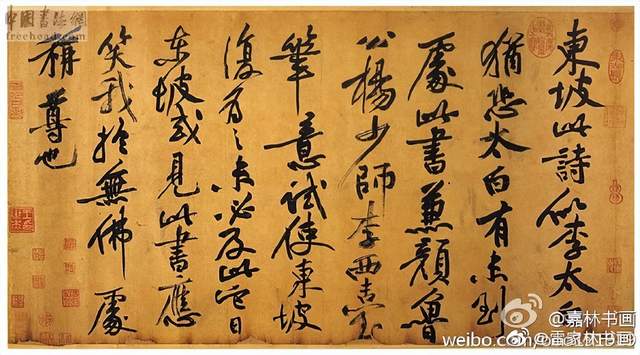 東坡此詩似李太白
猶恐太白有未到
處此書兼顏魯
公楊少師李西臺
筆意試使東坡
復為之未必及此它日
東坡或見此書應
笑我於無佛處
稱尊也
中國書法網
freehead.com
@嘉林书画
@雷家林书画
weibo.com/